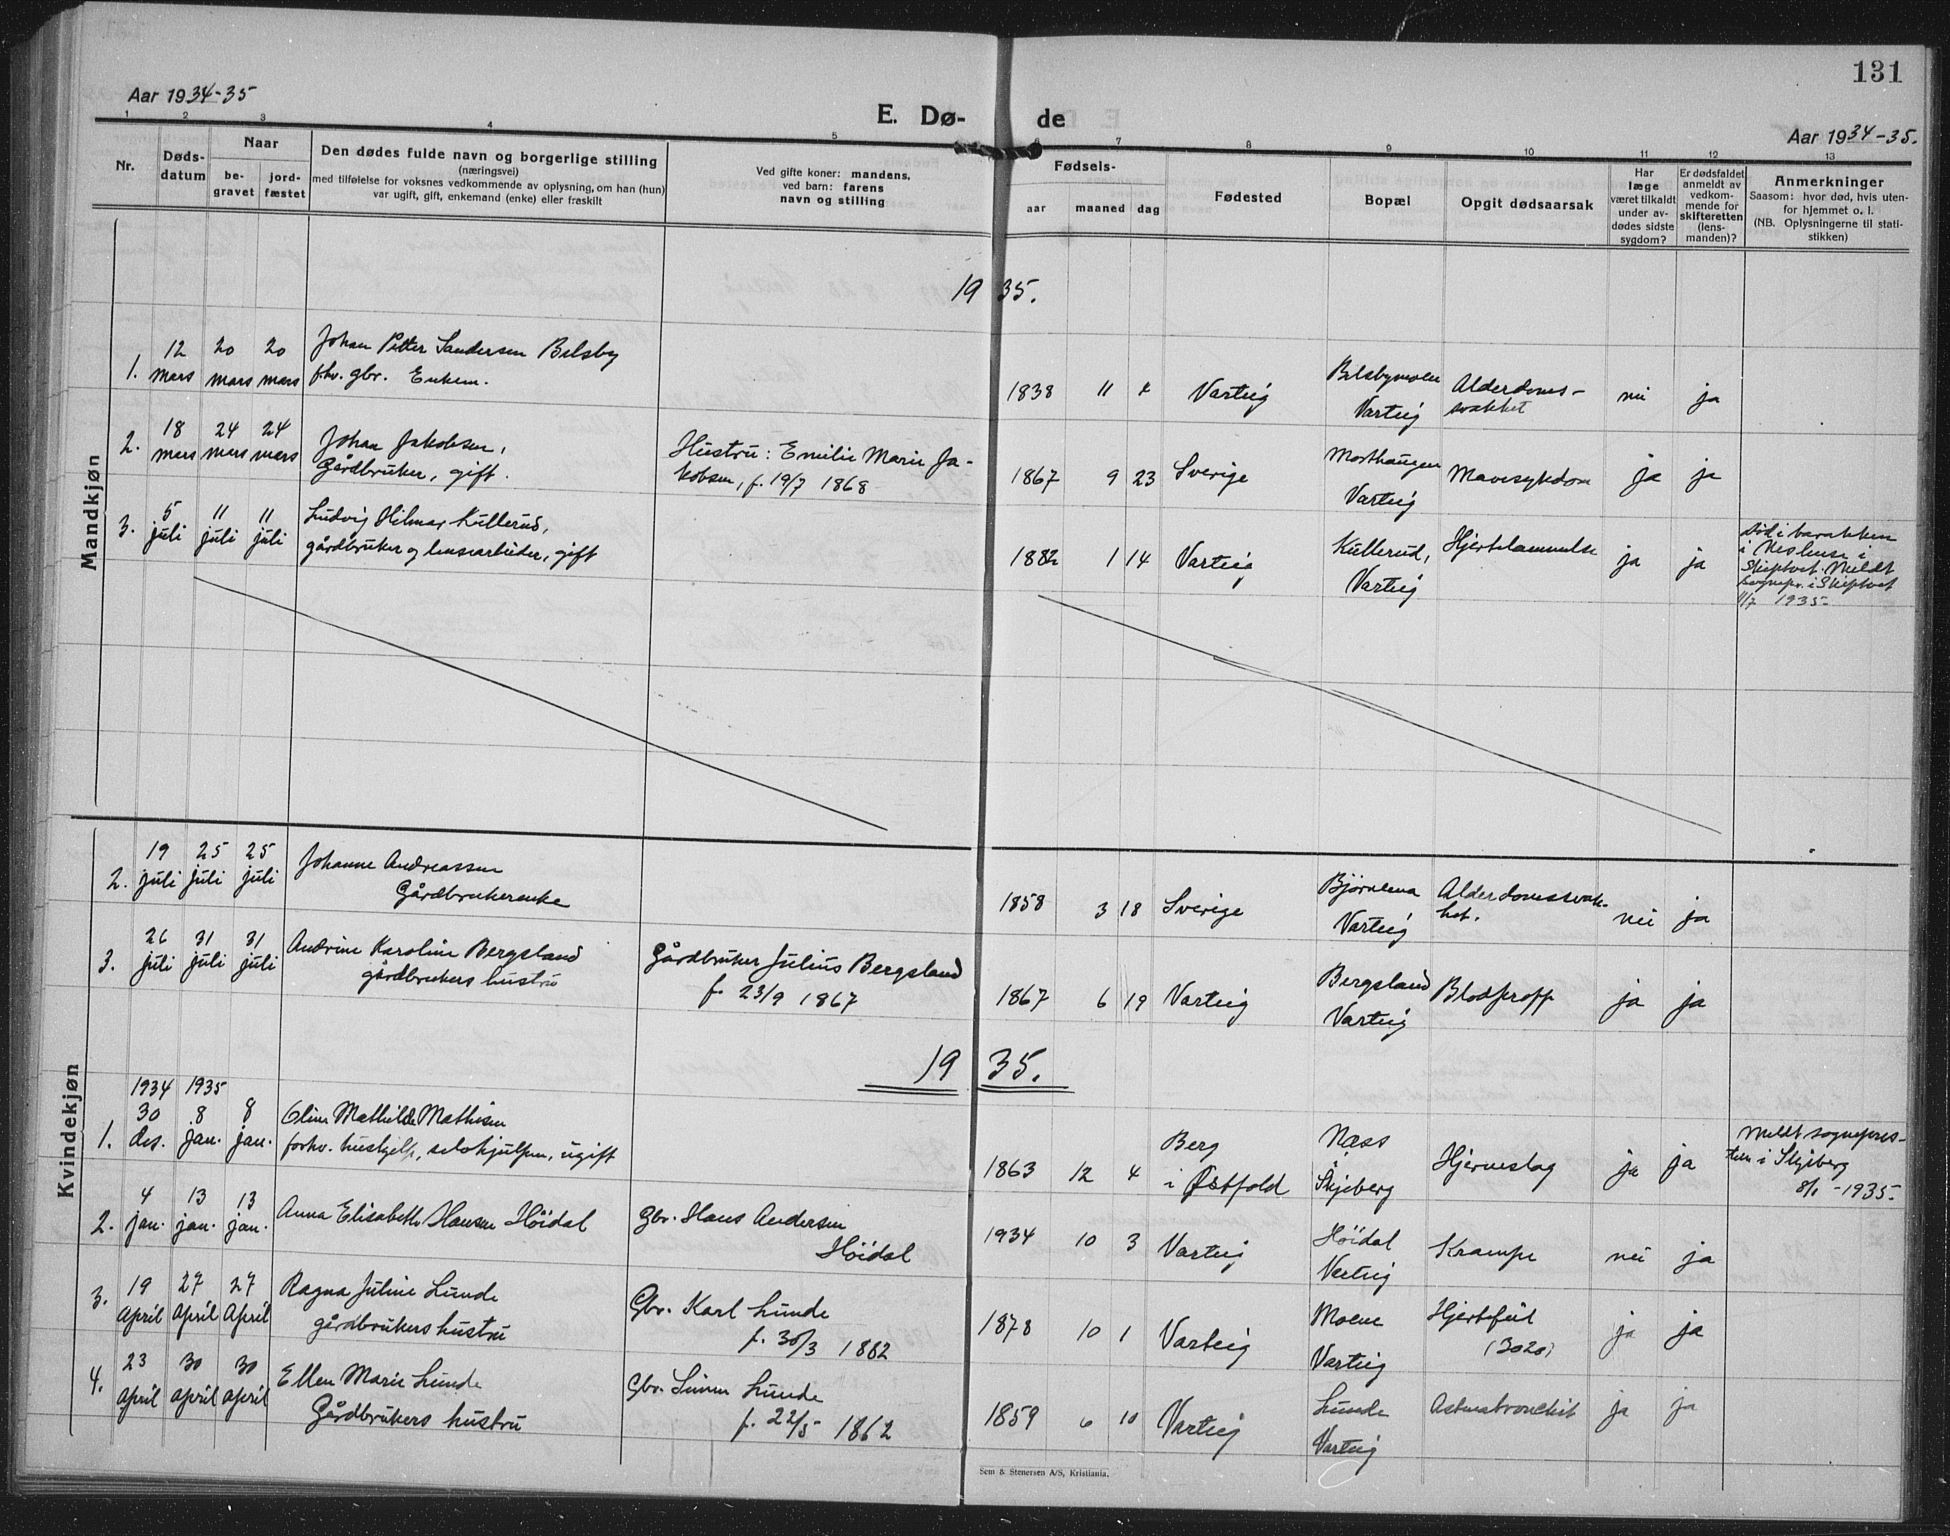 131
Aar 1934-35
E. Dø-
de
Aar 1934-35.
1 2 3 4 5 6 7 8 9 10 11 12 13
Nr.
Døds-
datum
Naar
be-
gravet
jord-
fæstet
Den dødes fulde navn og borgerlige stilling
(næringsvei)
med tilføielse for voksnes vedkommende av oplysning, om han (hun)
var ugift, gift, enkemand (enke) eller fraskilt
Ved gifte koner: mandens,
ved barn: farens
navn og stilling
Fødsels-
aar maaned dag
Fødested
Bopæl
Opgit dødsaarsak
Har
læge
været tilkaldt
under av-
dødes sidste
sygdom?
Er dødsfaldet
anmeldt av
vedkom-
mende for
skifteretten
(lens-
manden)?
Anmerkninger
Saasom: hvor død, hvis uten-
for hjemmet o. l.
(NB. Oplysningerne til stati-
stikken)
1935.
Mandkjøn
1.
12
mars
20
mars
20
mars
Johan Petter Sandersen Bilsby
fhv. gbr. Enkem.
1838 11 4 Varteig
Bilsbymoen
Varteig
Alderdoms-
svakhet
nei ja
2.
18
mars
24
mars
24
mars
Johan Jakobsen,
Gårdbruker, gift.
Hustru: Emilie Marie Ja-
kobsen, f. 19/7 1868
1867 9 23 Sverige
Morthaugen
Varteig
Mavesykdom
ja ja
3.
5
juli
11
juli
11
juli
Ludvig Hilmar Kullerud,
gårdbruker og lensearbeider, gift
1882 1 14 Varteig
Kullerud,
Varteig
Hjertelammelse
ja ja
død i barakken
i Neslense i
Skiptvet. Meldt
sognepr. i Skiptvet
11/7 1935-
Kvindekjøn
2.
19
juli
25
juli
25
juli
Johanne Andreassen
Gårdbrukerenke
1858 3 18 Sverige
Bjørnlena
Varteig
Alderdomssvak-
het.
nei ja
3.
26
juli
31
juli
31
juli
Andrine Karoline Bergsland
gårdbrukers hustru
Gårdbruker Julius Bergsland
f. 23/9 1867
1867 6 19 Varteig
Bergsland
Varteig
Blodpropp
ja ja
1935.
1934 1935
1.
30
des.
8
jan.
8
jan.
Oline Mathilde Mathisen
forhv. hushjelp, selvhjulpen, ugift
1863 12 4
Berg
i Østfold
Næss
Skjeberg
Hjerneslag
ja ja
Meldt sognepres-
ten i Skjeberg
8/1 -1935-
2.
4
jan.
13
jan.
13
jan.
Anna Elisabeth Hansen Höidal
Gbr. Hans Andersen
Höidal
1934 10 3 Varteig
Höidal
Varteig
Krampe
nei ja
3.
19
April
27
April
27
April
Ragna Juline Lunde
gårdbrukers hustru
Gbr. Karl Lunde
f. 30/3 1882
1878 10 1 Varteig
Moene
Varteig
Hjertefeil
(3020)
ja ja
4.
23
April
30
april
30
april
Ellen Marie Lunde
Gårdbrukers hustru
Gbr. Simen Lunde
f. 22/5 1862
1859 6 10 Varteig
Lunde
Varteig
Astmabronchit
ja ja
Sem & Stenersen A/S, Kristiania.